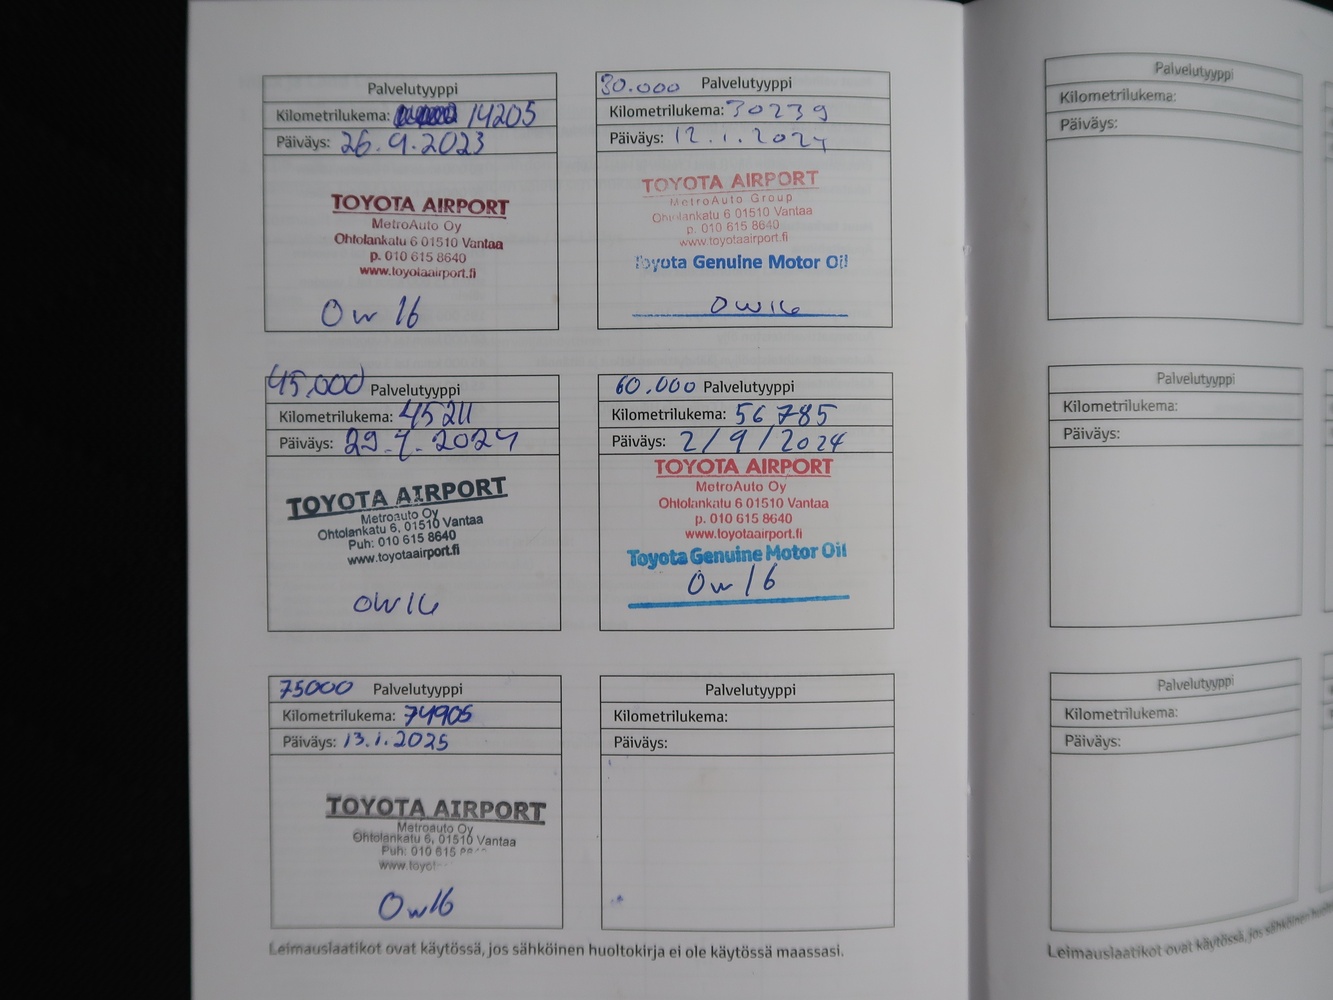 Palvelutyyppi
Kilometrilukema: 14205
Päiväys: 26.9.2023
TOYOTA AIRPORT
MetroAuto Oy
Ohtolankatu 6 01510 Vantaa
p. 010 615 8640
www.toyotaairport.fi
0w16
30.000 Palvelutyyppi
Kilometrilukema: 30239
Päiväys: 12.1.2024
TOYOTA AIRPORT
MetroAuto Group
Ohtolankatu 6 01510 Vantaa
p. 010 615 8640
www.toyotaairport.fi
Toyota Genuine Motor Oil
0W16
45.000 Palvelutyyppi
Kilometrilukema: 45211
Päiväys: 29.4.2024
TOYOTA AIRPORT
Metroauto Oy
Ohtolankatu 6, 01510 Vantaa
Puh: 010 615 8640
www.toyotaairport.fi
0W16
60.000 Palvelutyyppi
Kilometrilukema: 56785
Päiväys: 2/9/2024
TOYOTA AIRPORT
MetroAuto Oy
Ohtolankatu 6 01510 Vantaa
p. 010 615 8640
www.toyotaairport.fi
Toyota Genuine Motor Oil
0w16
75000 Palvelutyyppi
Kilometrilukema: 74905
Päiväys: 13.1.2025
TOYOTA AIRPORT
Metroauto Oy
Ohtolankatu 6, 01510 Vantaa
Puh: 010 615
www.toyot
0w16
Palvelutyyppi
Kilometrilukema:
Päiväys:
Leimauslaatikot ovat käytössä, jos sähköinen huoltokirja ei ole käytössä maassasi.
Palvelutyyppi
Kilometrilukema:
Päiväys:
Palvelutyyppi
Kilometrilukema:
Päiväys:
Palvelutyyppi
Kilometrilukema:
Päiväys:
Leimauslaatikot ovat käytössä, jos sähköinen